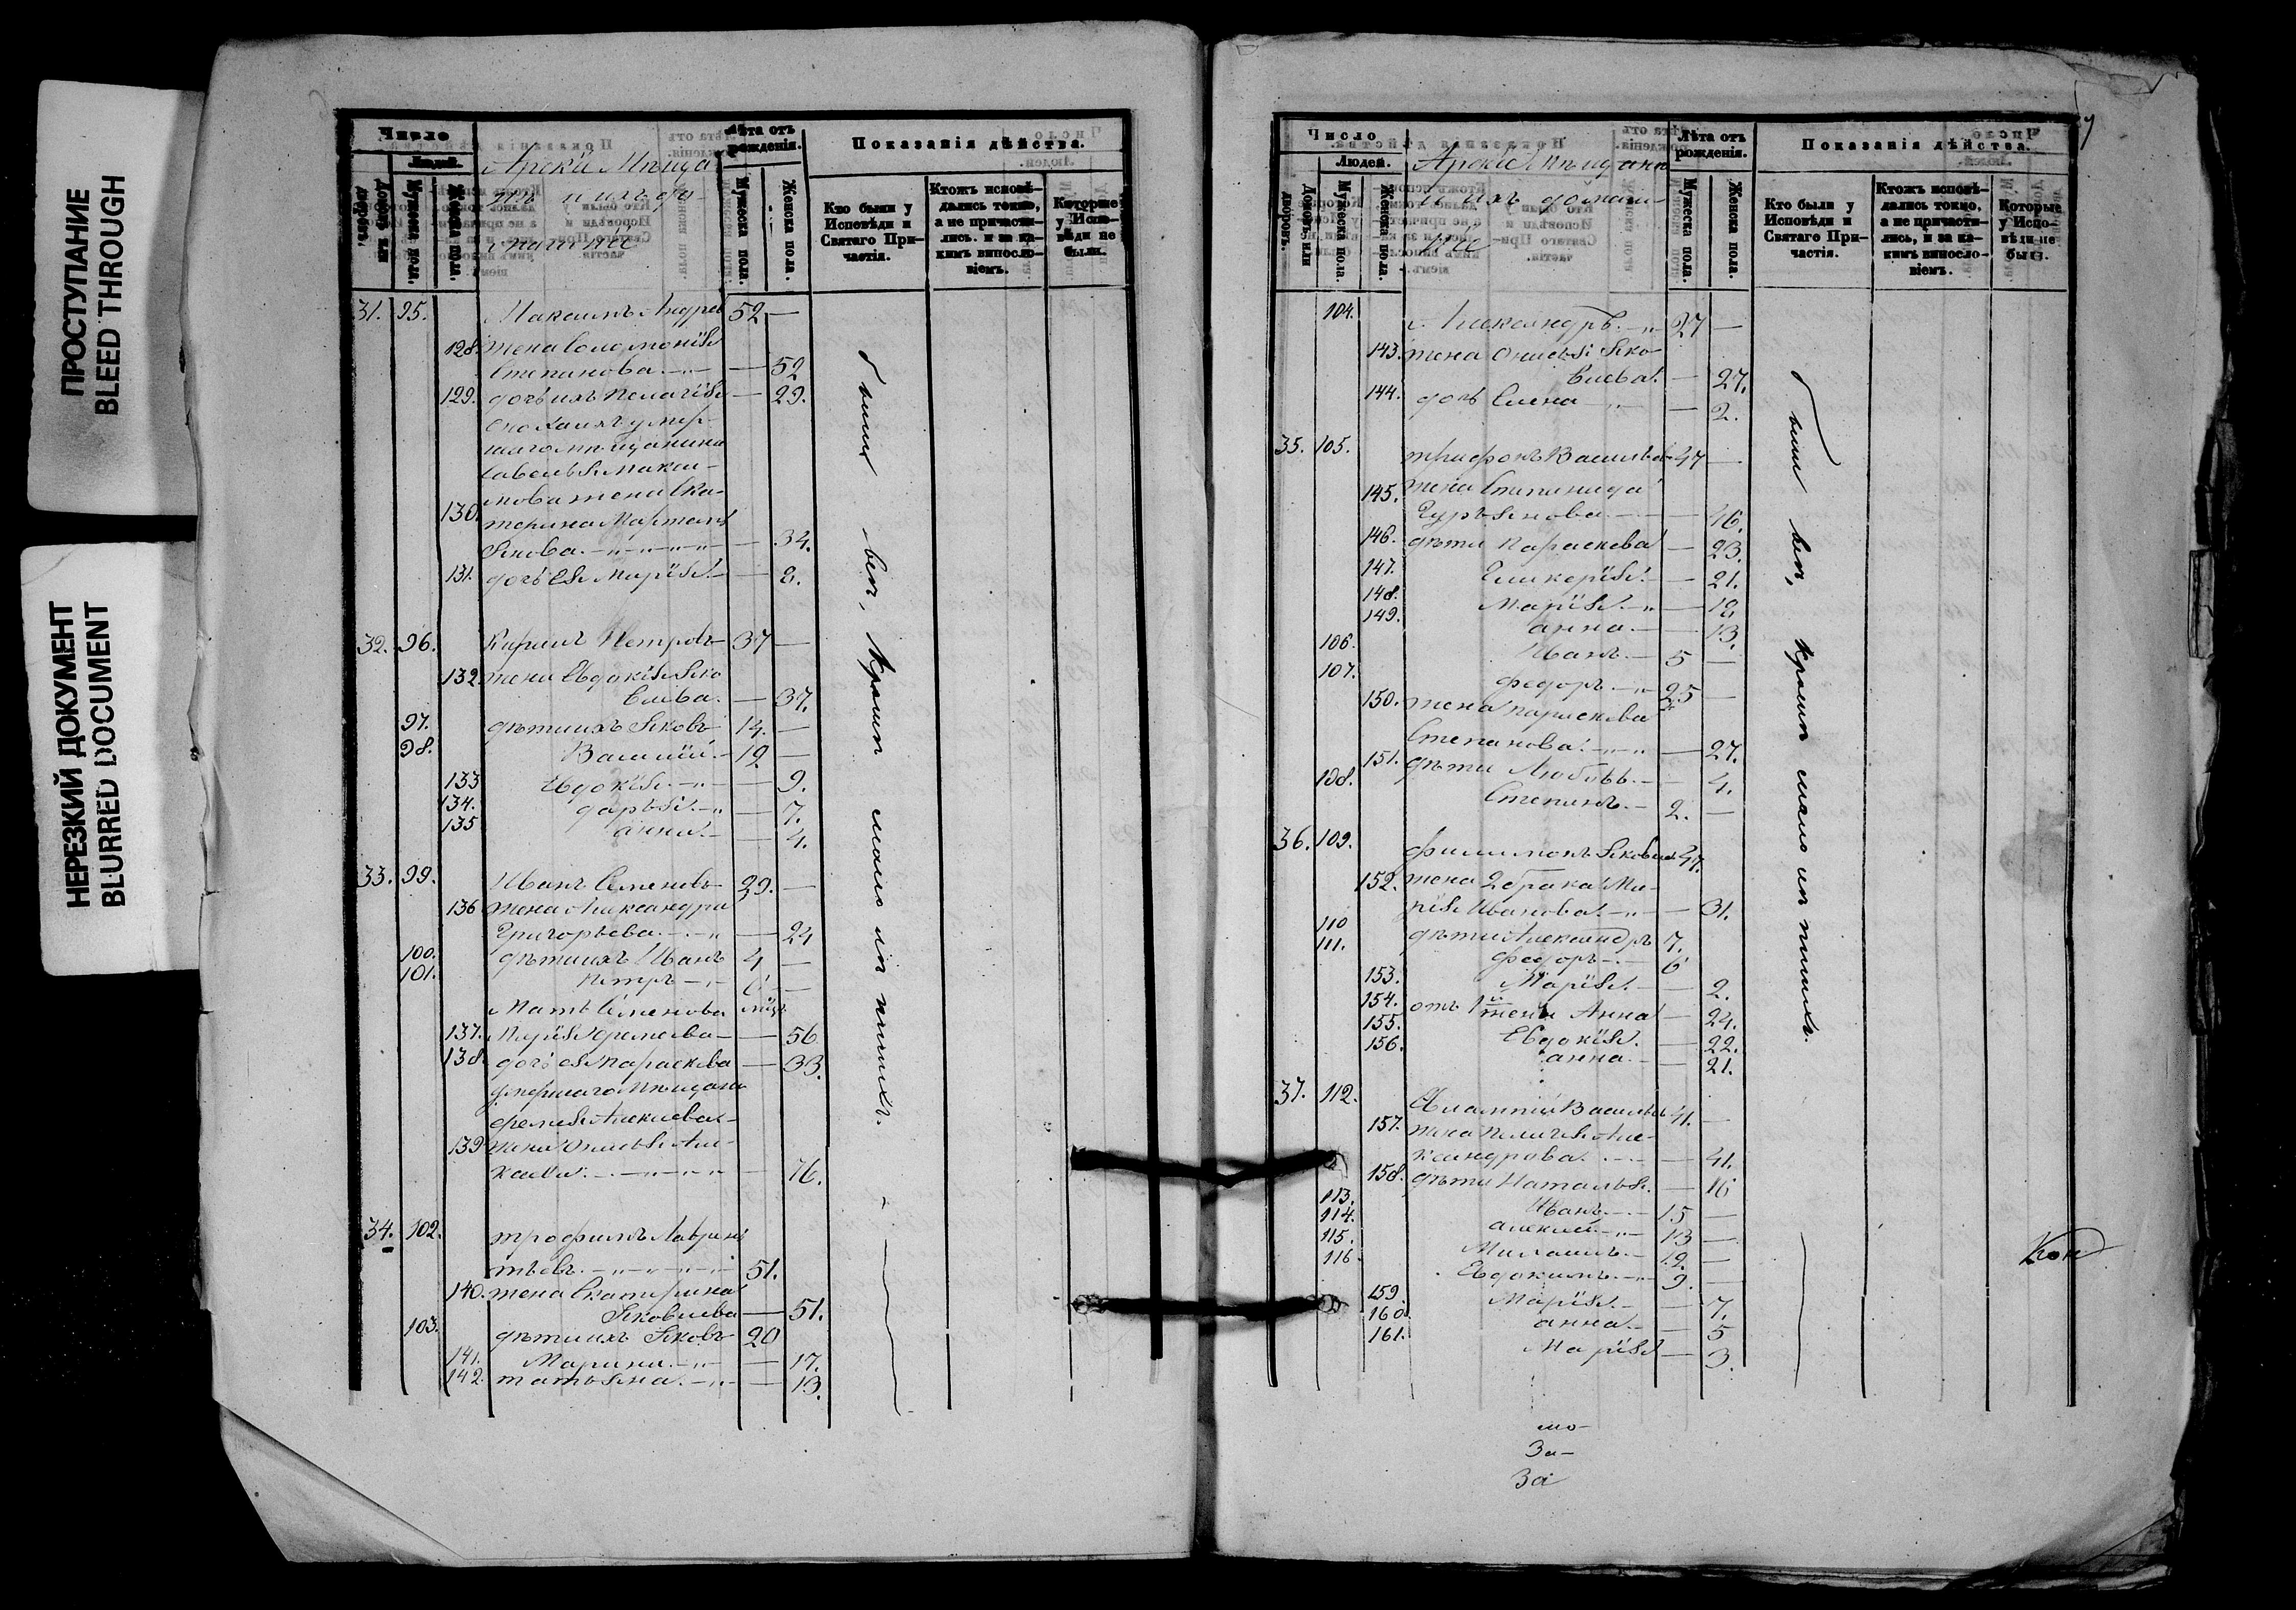 ПРОСТУПАНИЕ
BLEED THROUGH
НЕРЕЗКИЙ ДОКУМЕНТ
BLURRED DOCUMENT
Число
Людей.
Домовъ или дворовъ.
Мужеска пола.
Женска пола.
Арскiе Мѣща
не и ихъ до
машнiе
Лѣта отъ рожденiя.
Мужеска пола.
Женска пола.
Показанiя дѣйства.
Кто были у Исповѣди и Святаго При-частiя.
Ктожъ исповѣ-дались токмо, а не причасти-лись, и за ка-кимъ винослo-вiемъ.
Которые у Испо-вѣди не были.
31. 95. Максимъ Андрев 52 —
128. жена Соломонiя
Степанова — 52
129. дочь ихъ Пелагiя — 29.
умер
шаго мѣщанина
Савелья Макси-
мова жена Ека-
130. терина Мартемь
янова — 34.
131. дочь ея Марiя — 8.
32. 96. Кирилъ Петровъ 37 —
132. жена Евдокiя Яко
влева — 37.
97. дѣти ихъ Яковъ 14. —
98. Василiй 12 —
133 Евдокiя — 9.
134. дарья — 7.
135 анна — 4.
33. 99. Иванъ Семеновъ 29. —
136 жена Александра
Григорьева — 24
100. дѣти ихъ Иванъ 4 —
101. петръ
Мать Семенова
137. Марiя Ефремова — 56
138. дочь ея Параскева — 33.
умершаго Мѣщана
139 жена
76.
34. 102. трофимъ Лаврен
тьевъ 51.
140. жена Екатерина
Яковлева — 51.
103. дѣти ихъ Яковъ 20
141. Марина — 17.
142. татьяна — 13.
были все, Кромѣ мало лѣтнихъ.
Число
Людей.
Домовъ или дворовъ.
Мужеска пола.
Женска пола.
Арскiе Мѣщане
и ихъ домаш-
нiе
Лѣта отъ рожденiя.
Мужеска пола.
Женска пола.
Показанiя дѣйства.
Кто были у Исповѣди и Святаго При-частiя.
Ктожъ исповѣ-дались токмо, а не причасти-лись, и за ка-кимъ винослo-вiемъ.
Которые у Испо-вѣди не были.
104. Александръ 27 —
143. жена Яко-
влева — 27.
144. дочь Елена — 2.
35. 105. трифонъ Васильевъ 47 —
145. жена Степанида
Гурьянова — 46.
146. дѣти параскева — 23.
147. Гликерiя — 21.
148. Марiя — 18
149. анна — 13.
106. Иванъ 5 —
107. федоръ 25 —
150. жена параскева
Степанова — 27.
151. дѣти Любовь — 4.
108. Степанъ 2. —
36. 109. филимонъ Яковлевъ 47.
152. жена 2 брака Ма-
рiя Иванова — 31.
110 дѣти Александръ 7.
111. федоръ 6
153. Марiя — 2.
154. отъ 1й жены Анна — 24.
155. Евдокiя — 22.
156. анна — 21.
37. 112. Евлампiй Васильевъ 41. —
157. жена пелагiя Але-
ксандрова — 41.
158. дѣти Наталья — 16
113. Иванъ 15 —
114. алексiй 13 —
115. Михаилъ 12. —
116 Евдокимъ 9. —
159. Марiя — 7.
160. анна — 5
161. Марiя — 3.
были все, Кромѣ мало лѣтнихъ.
За
За